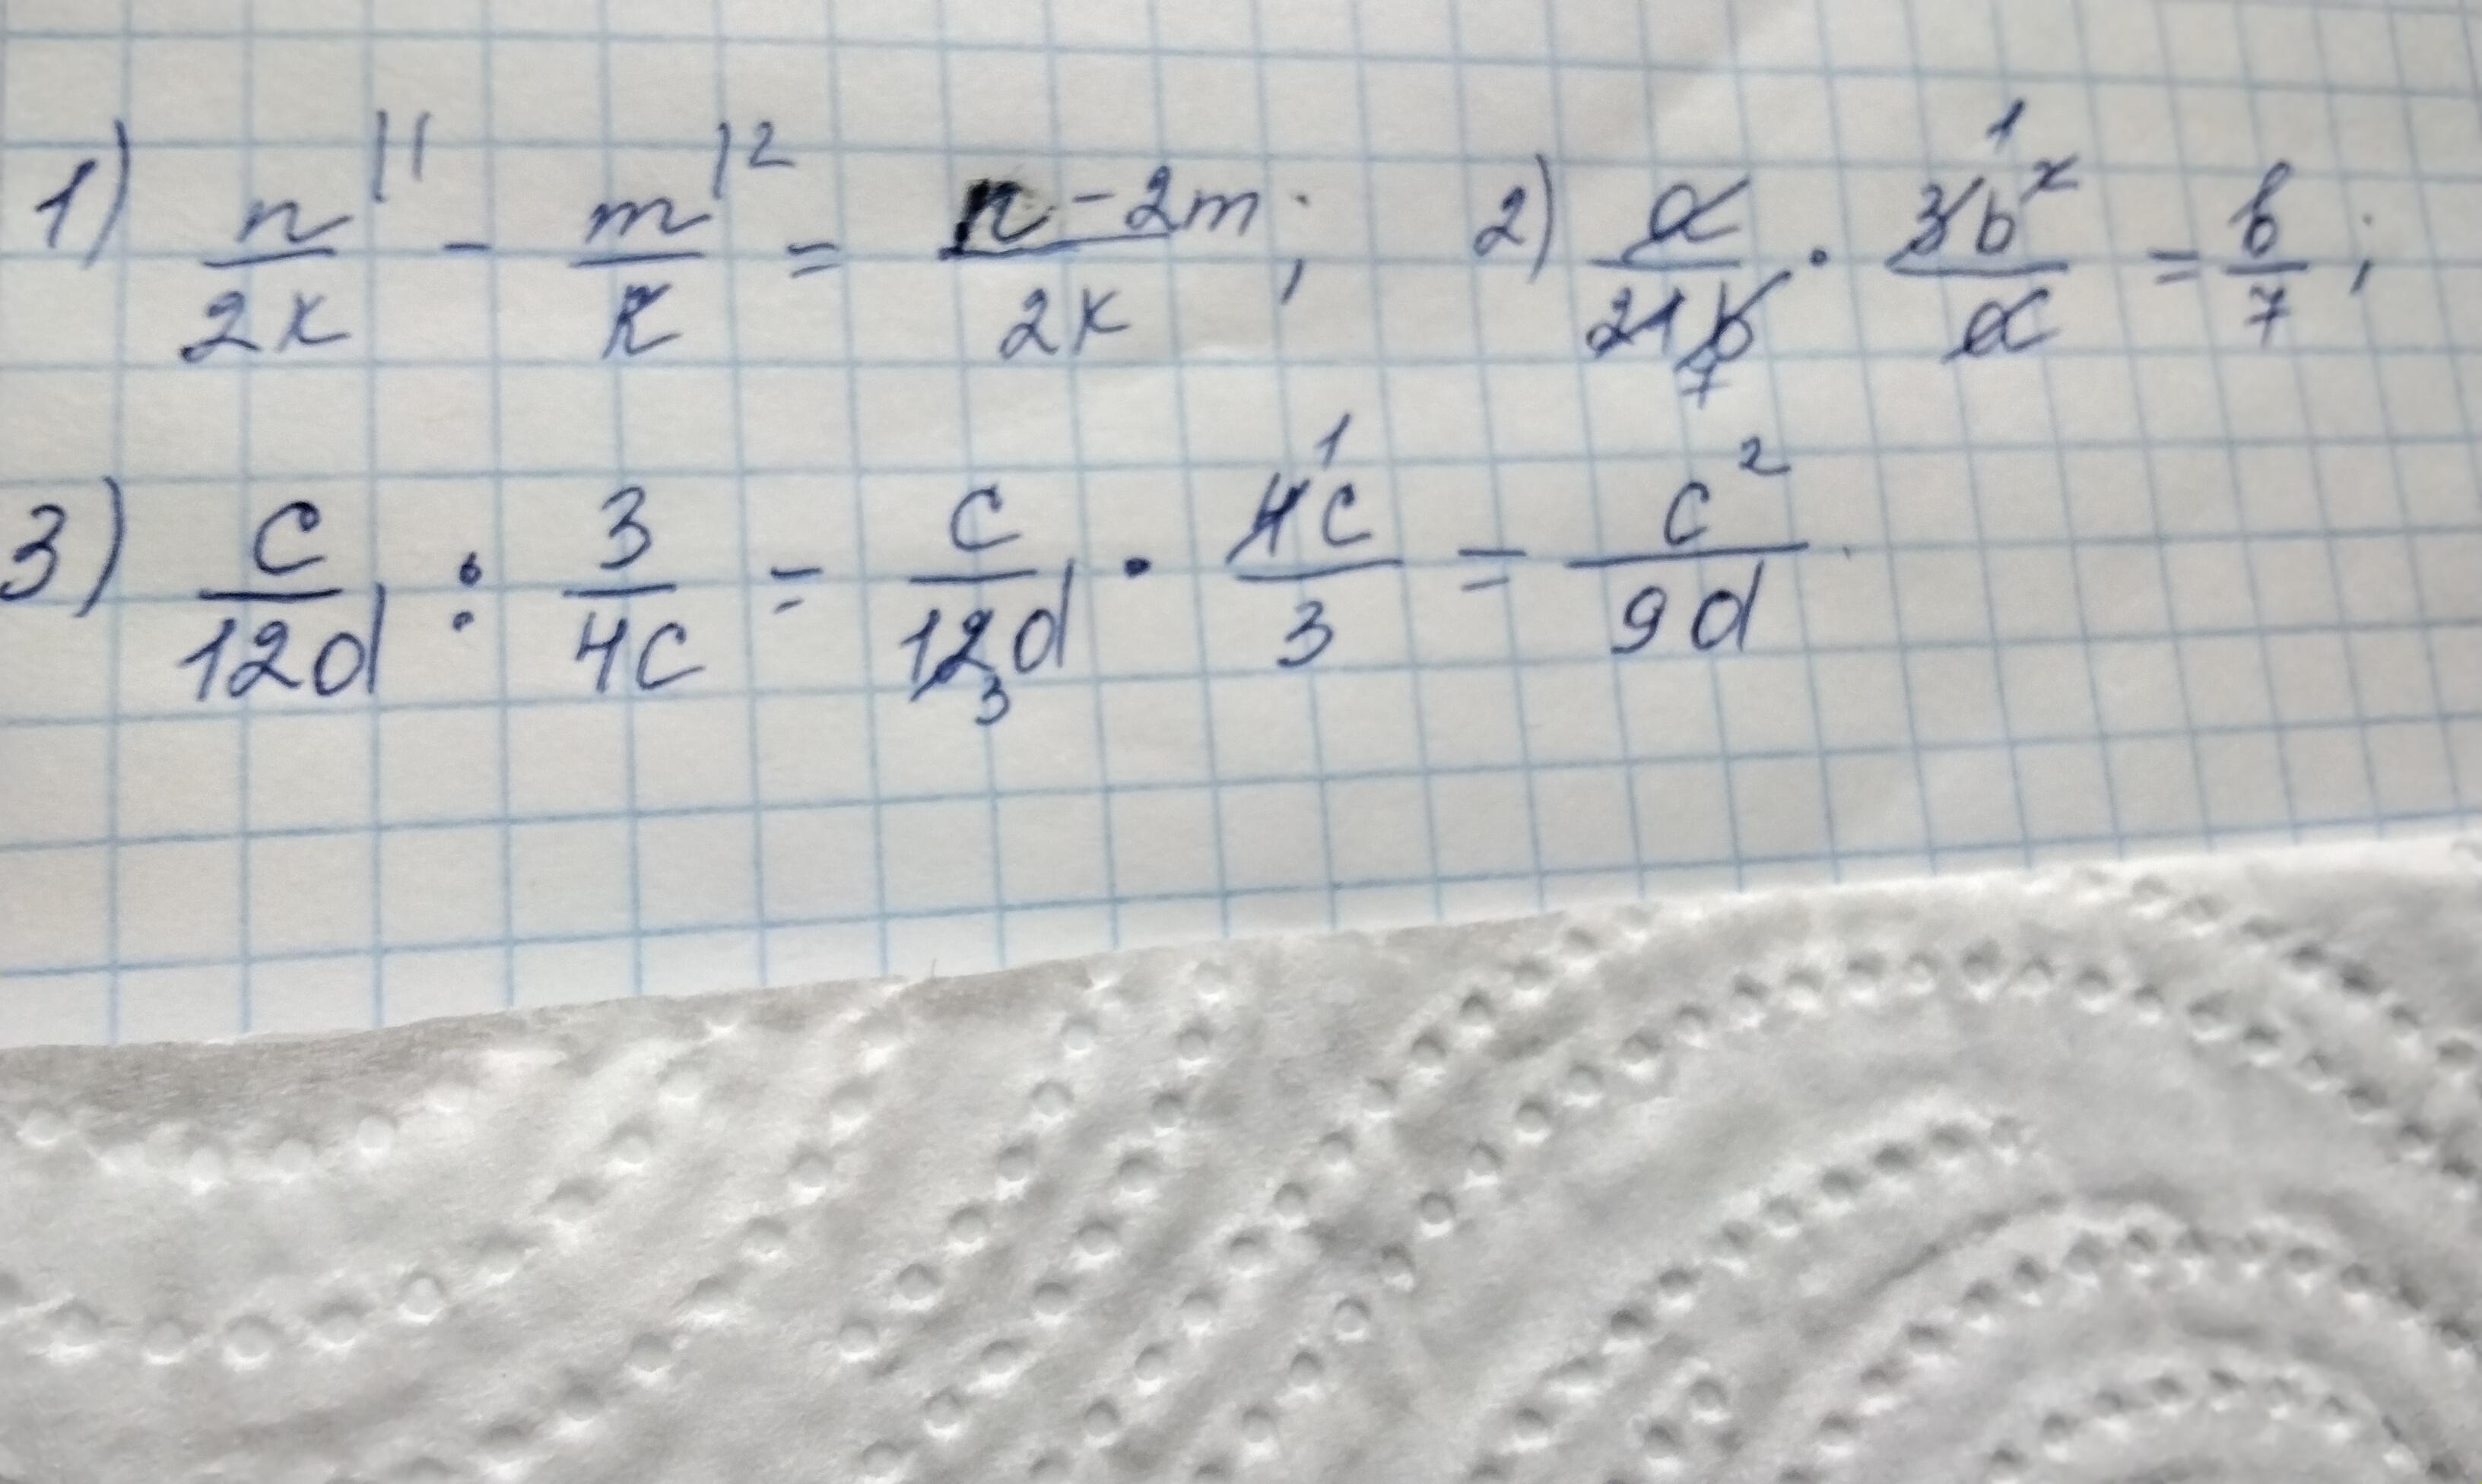 1) n/2k |1 - m/k |2 = (n-2m)/2k ; 2) a/21b 7 · 3b² 1/a = b/7 ;
3) c/12d : 3/4c = c/12d 3 · 4c 1/3 = c²/9d .